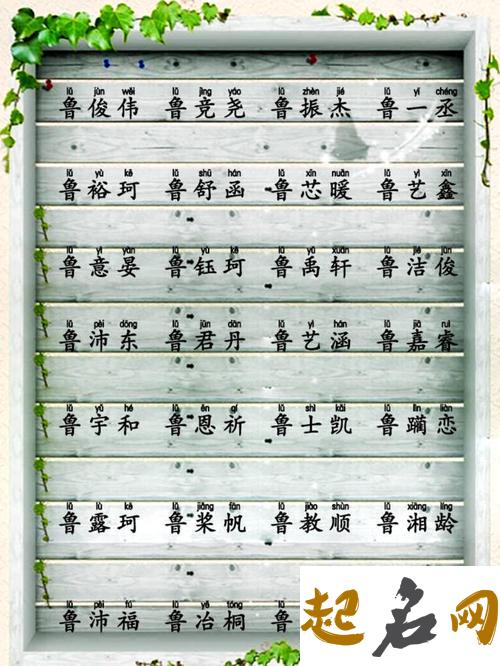 lǔ jùn wěi lǔ jìng yáo lǔ zhèn jié lǔ yī chéng
鲁俊伟 鲁竞尧 鲁振杰 鲁一丞
lǔ yù kē lǔ shū hán lǔ xīn nuǎn lǔ yì xīn
鲁裕珂 鲁舒函 鲁芯暖 鲁艺鑫
lǔ yì yàn lǔ yù kē lǔ yǔ xuān lǔ jié jùn
鲁意晏 鲁钰珂 鲁禹轩 鲁洁俊
lǔ pèi dōng lǔ jūn dān lǔ yì hán lǔ jiā ruì
鲁沛东 鲁君丹 鲁艺涵 鲁嘉睿
lǔ yǔ hé lǔ ēn qí lǔ shì kǎi lǔ lìn liàn
鲁宇和 鲁恩祈 鲁士凯 鲁躏恋
lǔ lù kē lǔ jiǎng fān lǔ jiào shùn lǔ xiāng líng
鲁露珂 鲁桨帆 鲁教顺 鲁湘龄
lǔ pèi fú lǔ yě tóng
鲁沛福 鲁冶桐 鲁
起名网